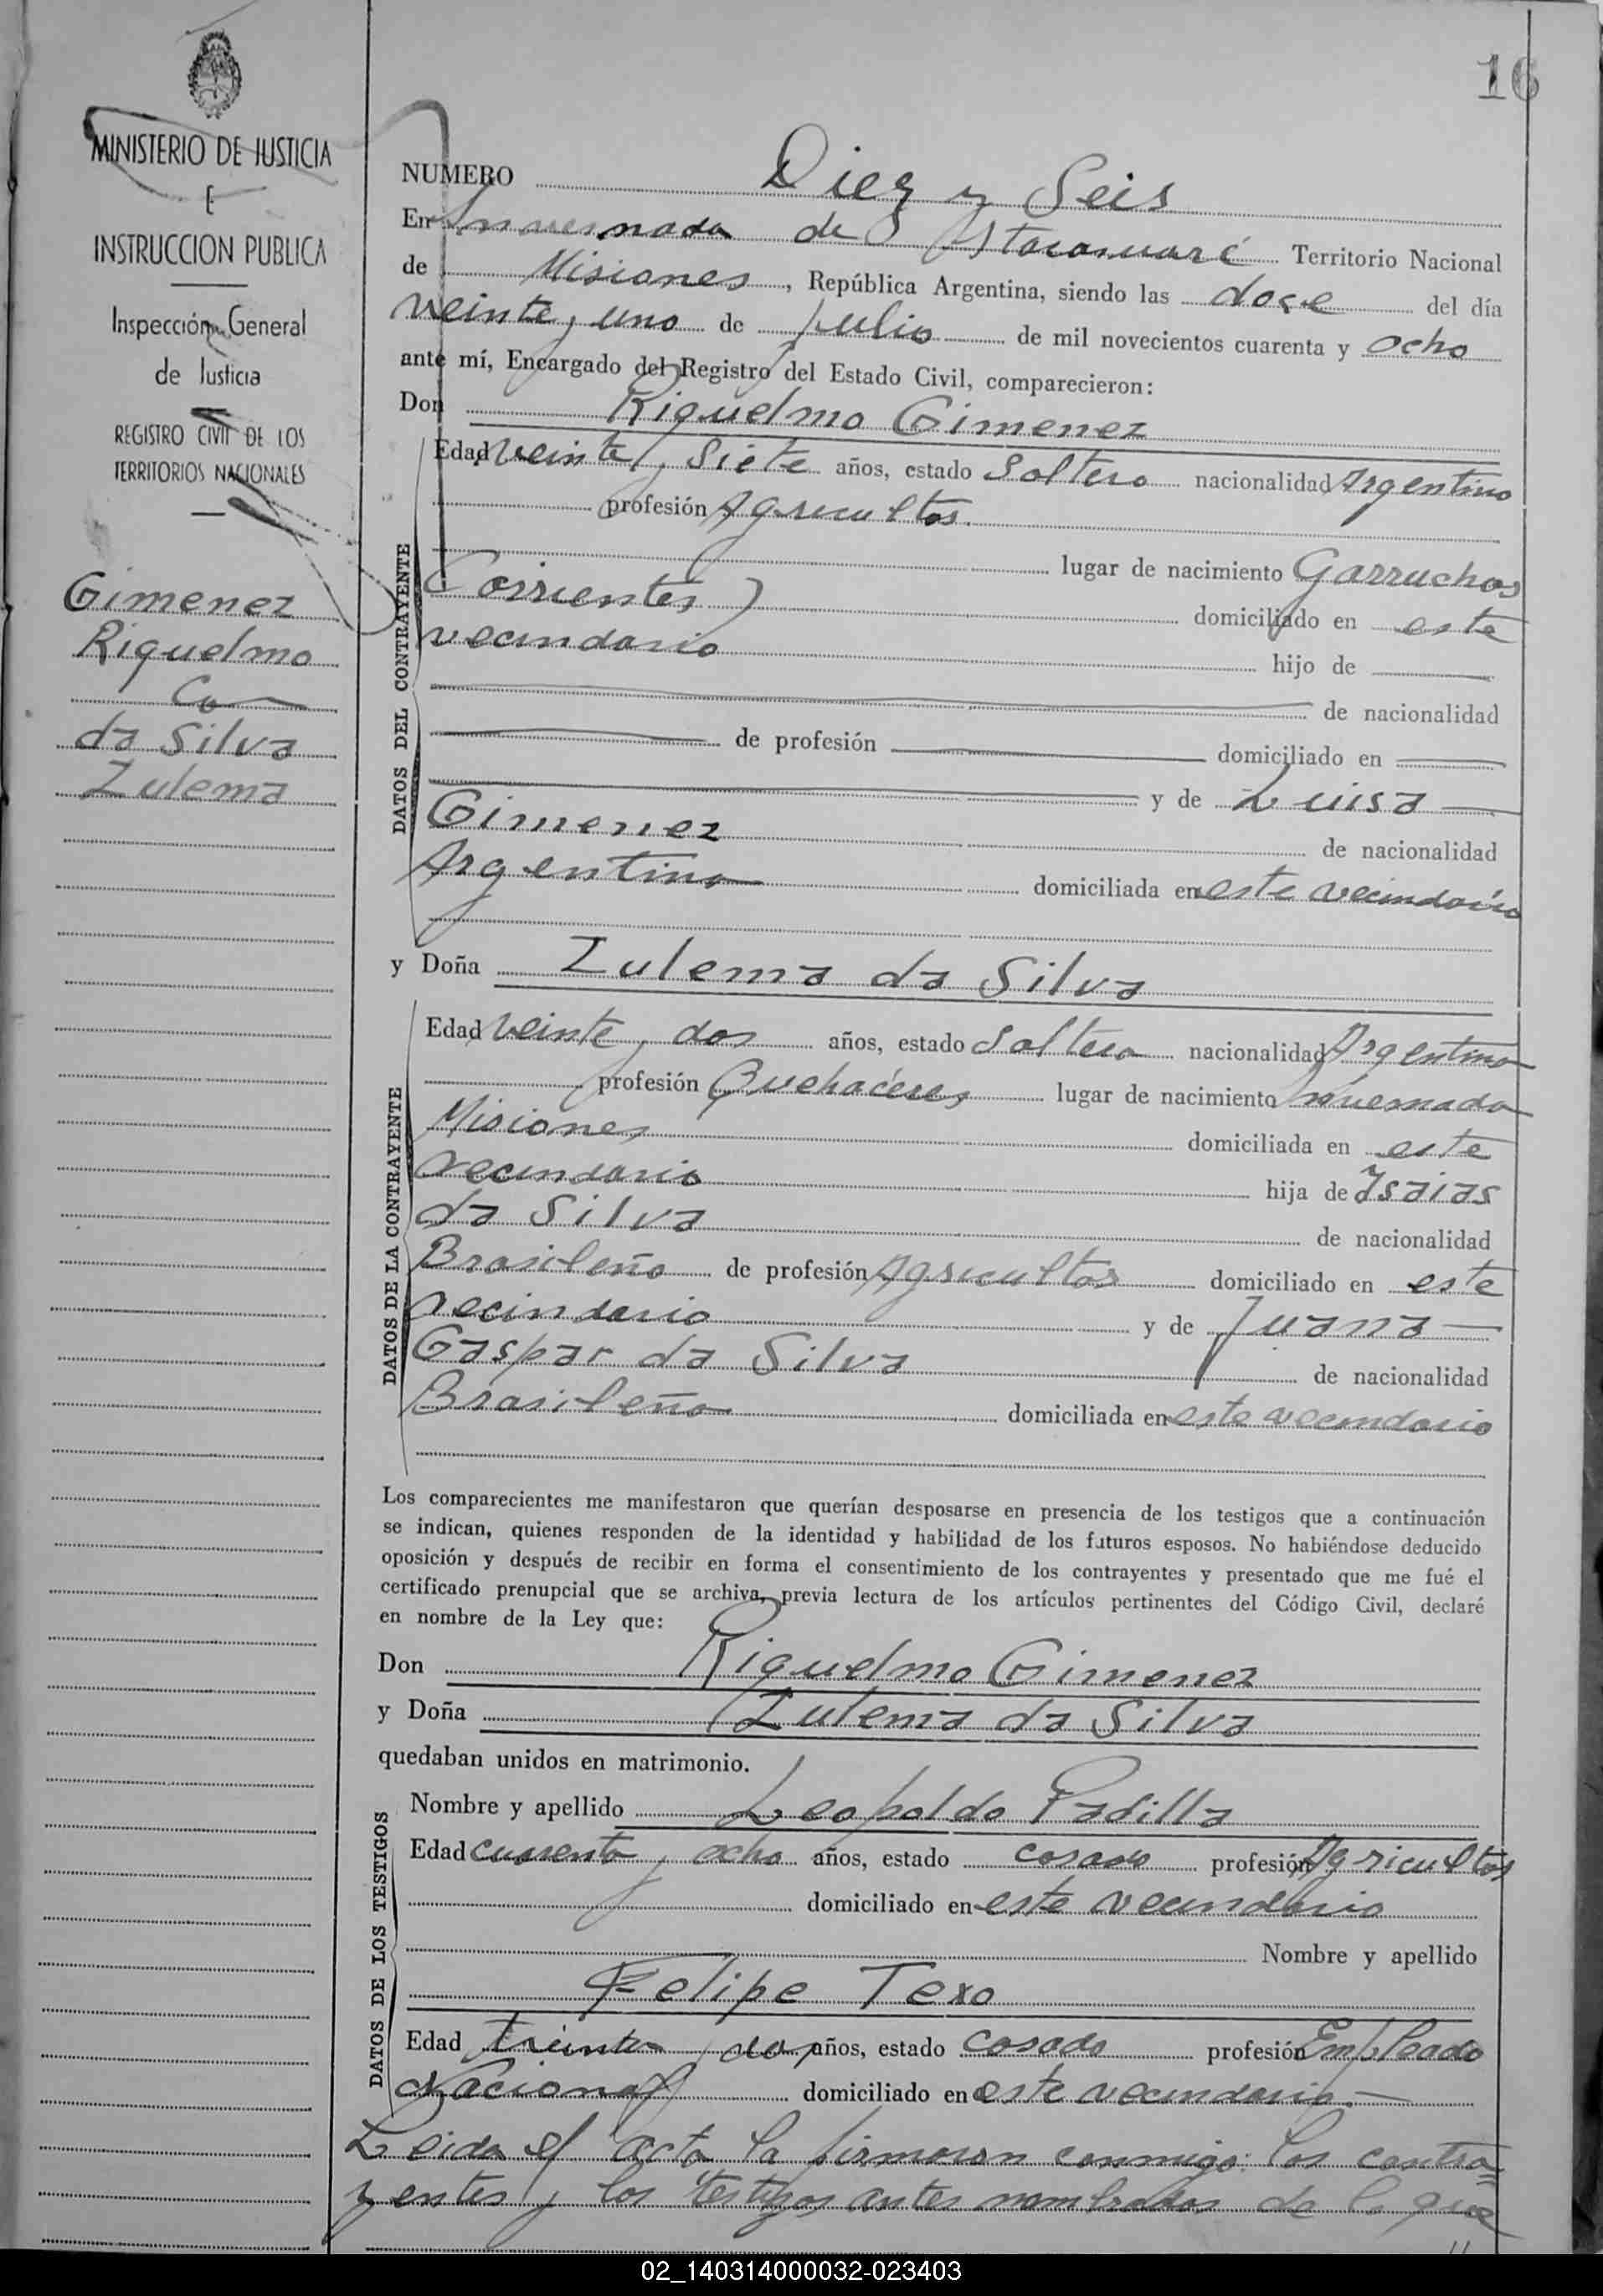 16
MINISTERIO DE JUSTICIA
E
INSTRUCCION PUBLICA
Inspección General
de Justicia
REGISTRO CIVIL DE LOS
TERRITORIOS NACIONALES
Gimenez
Riquelmo
Co
da Silva
Zulema
NUMERO Diez y Seis
En Invernada de Itacaruaré Territorio Nacional
de Misiones, República Argentina, siendo las doce del día
veinte y uno de julio de mil novecientos cuarenta y ocho
ante mí, Encargado del Registro del Estado Civil, comparecieron:
Don Riquelmo Gimenez
DATOS DEL CONTRAYENTE
Edad veinte y Siete años, estado Soltero nacionalidad Argentino
profesión Agricultor.
lugar de nacimiento Garruchos
(Corrientes) domiciliado en este
vecindario hijo de
de nacionalidad
de profesión domiciliado en
y de Luisa
Gimenez de nacionalidad
Argentina domiciliada en este vecindario
y Doña Zulema da Silva
DATOS DE LA CONTRAYENTE
Edad veinte y dos años, estado Soltera nacionalidad Argentina
profesión Quehaceres lugar de nacimiento Invernada
Misiones domiciliada en este
vecindario hija de Isaias
da Silva de nacionalidad
Brasileño de profesión Agricultor domiciliado en este
vecindario y de Juana
Gaspar da Silva de nacionalidad
Brasileña domiciliada en este vecindario
Los comparecientes me manifestaron que querían desposarse en presencia de los testigos que a continuación
se indican, quienes responden de la identidad y habilidad de los futuros esposos. No habiéndose deducido
oposición y después de recibir en forma el consentimiento de los contrayentes y presentado que me fué el
certificado prenupcial que se archiva, previa lectura de los artículos pertinentes del Código Civil, declaré
en nombre de la Ley que:
Don Riquelmo Gimenez
y Doña Zulema da Silva
quedaban unidos en matrimonio.
DATOS DE LOS TESTIGOS
Nombre y apellido Leopoldo Padilla
Edad cuarenta y ocho años, estado casado profesión Agricultor
domiciliado en este vecindario
Nombre y apellido
Felipe Texo
Edad treinta y dos años, estado casado profesión Empleado
Nacional domiciliado en este vecindario.
Leida el acta la firmaron conmigo los contra-
yentes y los testigos antes nombrados de lo que
02_140314000032-023403